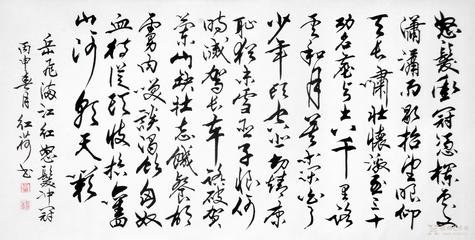 怒髮衝冠憑欄處
瀟瀟雨歇抬望眼仰
天長嘯壯懷激烈三十
功名塵與土八千里路
雲和月莫等閒白了
少年頭空悲切靖康
恥猶未雪臣子恨何
時滅駕長車踏破賀
蘭山缺壯志饑餐胡
虜肉笑談渴飲匈奴
血待從頭收拾舊
山河朝天闕
岳飛滿江紅怒髮沖冠
丙申春月紅荷書